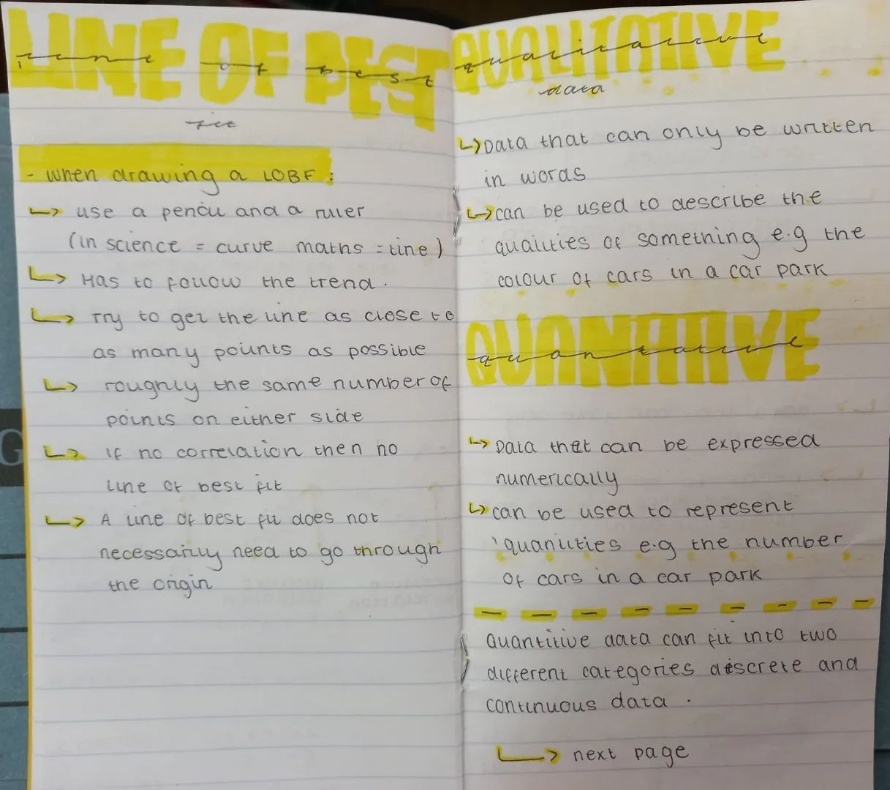 LINE OF BEST
line of best
fit
- when drawing a LOBF:
↳ use a pencil and a ruler
(in science = curve maths = line)
↳ Has to follow the trend.
↳ Try to get the line as close to
as many points as possible
↳ roughly the same number of
points on either side
↳ If no correlation then no
line of best fit
↳ A line of best fit does not
necessarily need to go through
the origin
QUALITATIVE
qualitative
data
↳ Data that can only be written
in words
↳ can be used to describe the
qualities of something e.g the
colour of cars in a car park
QUANATIVE
quantative
↳ Data that can be expressed
numerically
↳ can be used to represent
quanities e.g the number
of cars in a car park
Quantitive data can fit into two
different categories discrete and
continuous data .
↳ next page